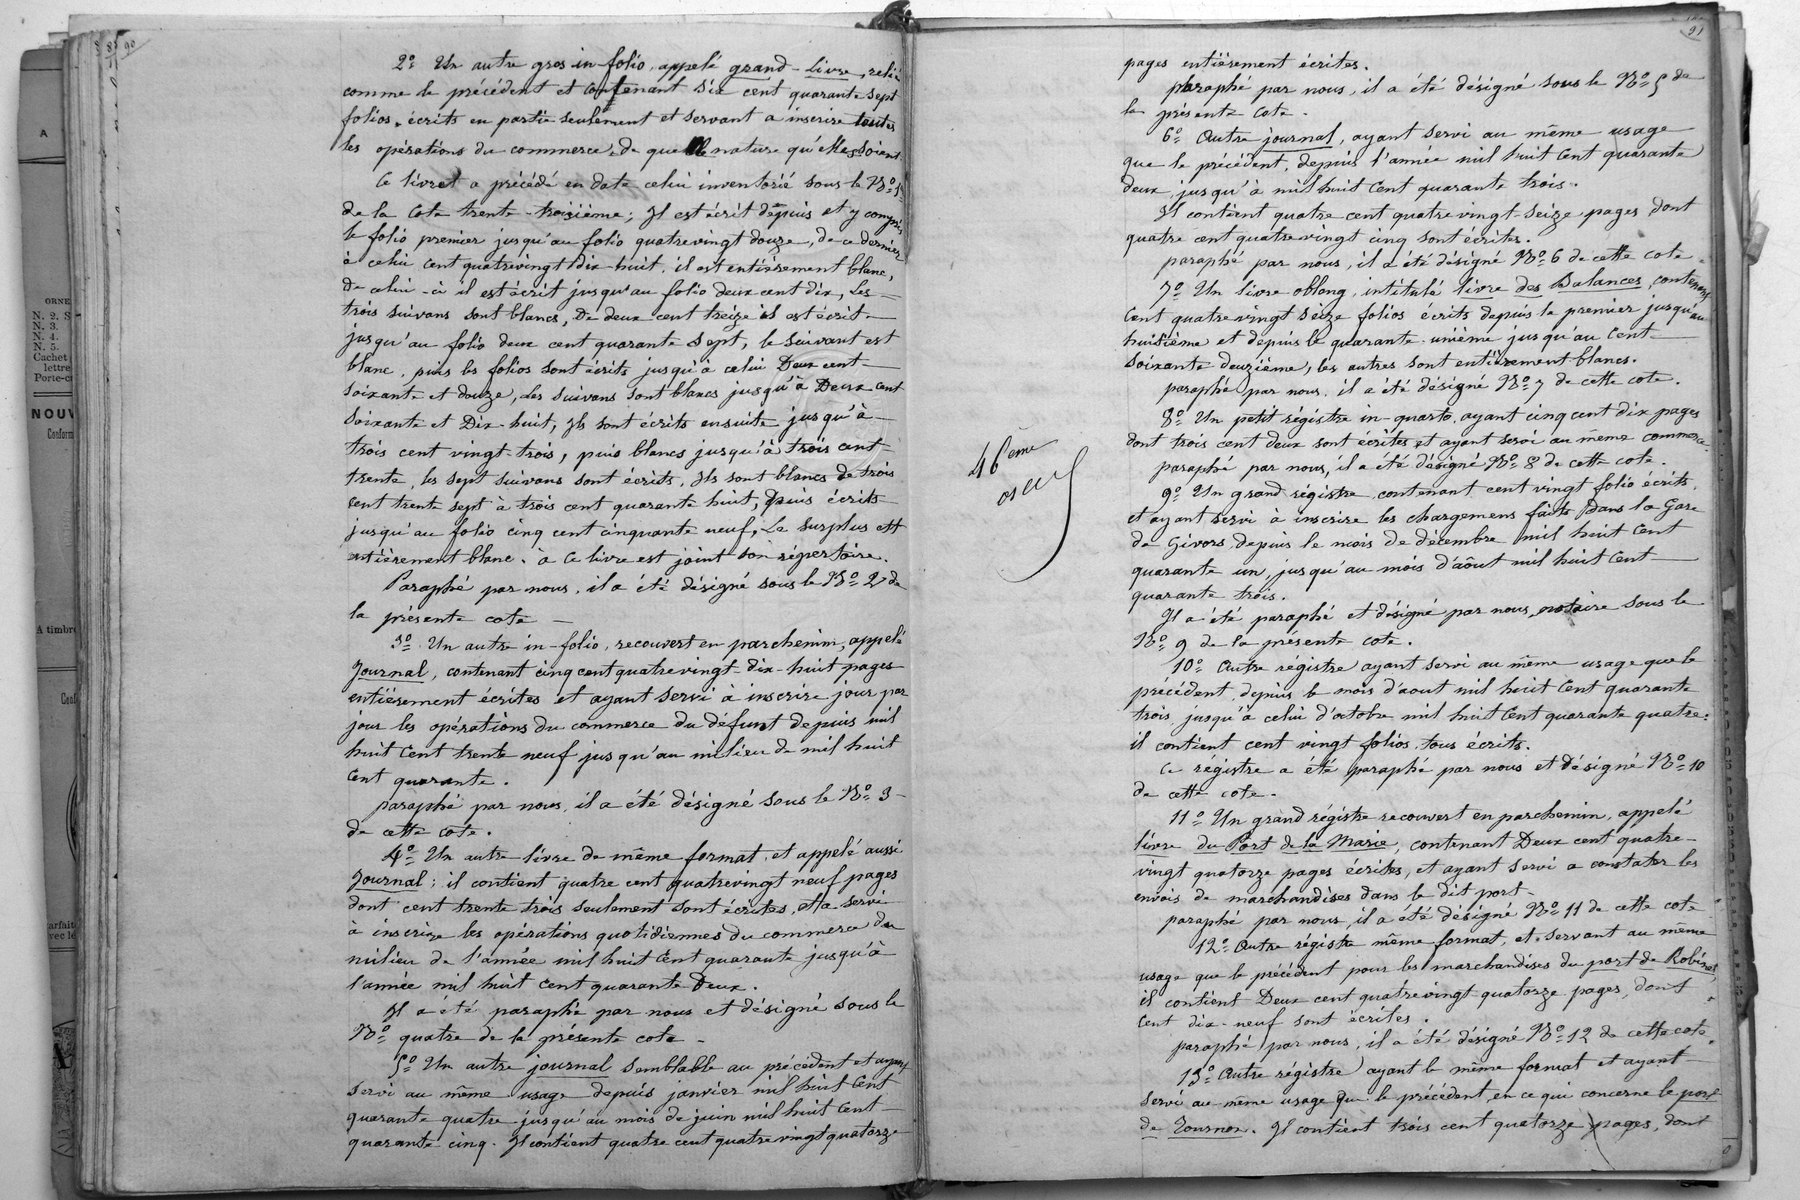 90
2º Un autre gros in-folio, appelé grand-livre, relié
comme le précédent et contenant six cent quarante sept
folios, écrits en partie seulement et servant a inscrire toutes
les opérations du commerce, de quelle nature qu'elles soient.
Ce livret a précédé en date celui inventorié sous le Nº 1er
de la Cote trente-troisième; Il est écrit depuis et y compris
le folio premier jusqu'au folio quatrevingt douze, de ce dernier
à celui cent quatrevingt dix-huit, il est entièrement blanc,
De celui-ci il est écrit jusqu'au folio deux cent dix, Les
trois suivans sont blancs, De deux cent treize il est écrit
jusqu'au folio deux cent quarante sept, le suivant est
blanc, puis les folios sont écrits jusqu'à celui Deux cent
soixante et douze, Les suivans sont blancs jusqu'à Deux cent
soixante et Dix-huit, Ils sont écrits ensuite jusqu'à
trois cent vingt-trois, puis blancs jusqu'à trois cent
trente, les sept suivans sont écrits, Ils sont blancs de trois
cent trente sept à trois cent quarante huit, puis écrits
jusqu'au folio cinq cent cinquante neuf, Le surplus est
entièrement blanc. à Ce livre est joint son répertoire.
Paraphé par nous, il a été désigné sous le Nº 2 de
la présente cote —
3º Un autre in-folio, recouvert en parchemin, appelé
Journal, contenant cinq cent quatrevingt-dix-huit pages
entièrement écrites et ayant servi à inscrire jour par
jour les opérations du commerce du défunt depuis mil
huit Cent trente neuf jusqu'au milieu de mil huit
Cent quarante.
paraphé par nous, il a été désigné sous le Nº 3
de cette cote.
4º Un autre livre de même format, et appelé aussi
Journal; il contient quatre cent quatrevingt neuf pages
dont cent trente trois seulement sont écrites, et a servi
à inscrire les opérations quotidiennes du commerce du
milieu de l'année mil huit Cent quarante jusqu'à
l'année mil huit cent quarante Deux.
Il a été paraphé par nous et désigné sous le
Nº quatre de la présente cote —
5º Un autre journal semblable au précédent et ayant
servi au même usage depuis janvier mil huit Cent
quarante quatre jusqu'au mois de juin mil huit Cent
quarante-cinq. Il contient quatre cent quatre vingt quatorze
91
pages entièrement écrites.
paraphé par nous, il a été désigné sous le Nº 5 de
la présente cote.
6º Autre journal, ayant servi au même usage
que le précédent, depuis l'année mil huit Cent quarante
deux, jusqu'à mil huit Cent quarante trois.
Il contient quatre cent quatre vingt-seize pages dont
quatre cent quatrevingt cinq sont écrites.
paraphé par nous, il a été désigné Nº 6 de cette cote.
7º Un livre oblong, intitulé livre des Balances, contenant
Cent quatrevingt seize folios écrits depuis le premier jusqu'au
huitième et depuis le quarante-unième jusqu'au Cent
soixante deuzième, les autres sont entièrement blancs.
paraphé par nous, il a été désigné Nº 7 de cette cote.
8º Un petit régistre in-quarto, ayant cinq cent dix pages
dont trois cent deux sont écrites et ayant servi au même commerce.
paraphé par nous, il a été désigné Nº 8 de cette cote.
46ème
9º Un grand régistre, contenant cent vingt folio écrits,
et ayant servi à inscrire les chargemens faits Dans la Gare
de Givors, depuis le mois de décembre mil huit Cent
quarante un, jusqu'au mois d'août mil huit Cent
quarante trois.
Il a été paraphé et désigné par nous, notaire sous le
Nº 9 de la présente cote.
10º Autre régistre ayant servi au même usage que le
précédent depuis le mois d'aout mil huit Cent quarante
trois, jusqu'à celui d'octobre mil huit Cent quarante quatre:
il contient cent vingt folios, tous écrits.
Ce régistre a été paraphé par nous et désigné Nº 10
de cette cote.
11º Un grand régistre recouvert en parchemin, appelé
livre du Port de la Marie, contenant Deux cent quatre-
vingt quatorze pages écrites, et ayant servi a constater les
envois de marchandises dans le dit port.
paraphé par nous, il a été désigné Nº 11 de cette cote
12º Autre régistre même format, et servant au même
usage que le précédent pour les marchandises du port de Robinet,
il contient Deux cent quatrevingt-quatorze pages, dont
Cent dix-neuf sont écrites.
paraphé par nous, il a été désigné Nº 12 de cette cote.
13º Autre régistre ayant le même format et ayant
servi au même usage que le précédent, en ce qui concerne le port
de Tournon. Il contient trois cent quatorze pages, dont
A
ORNE
N. 2. S
N. 3.
N. 4.
N. 5.
Cachet
lettre
NOUV
Conform
A timbre